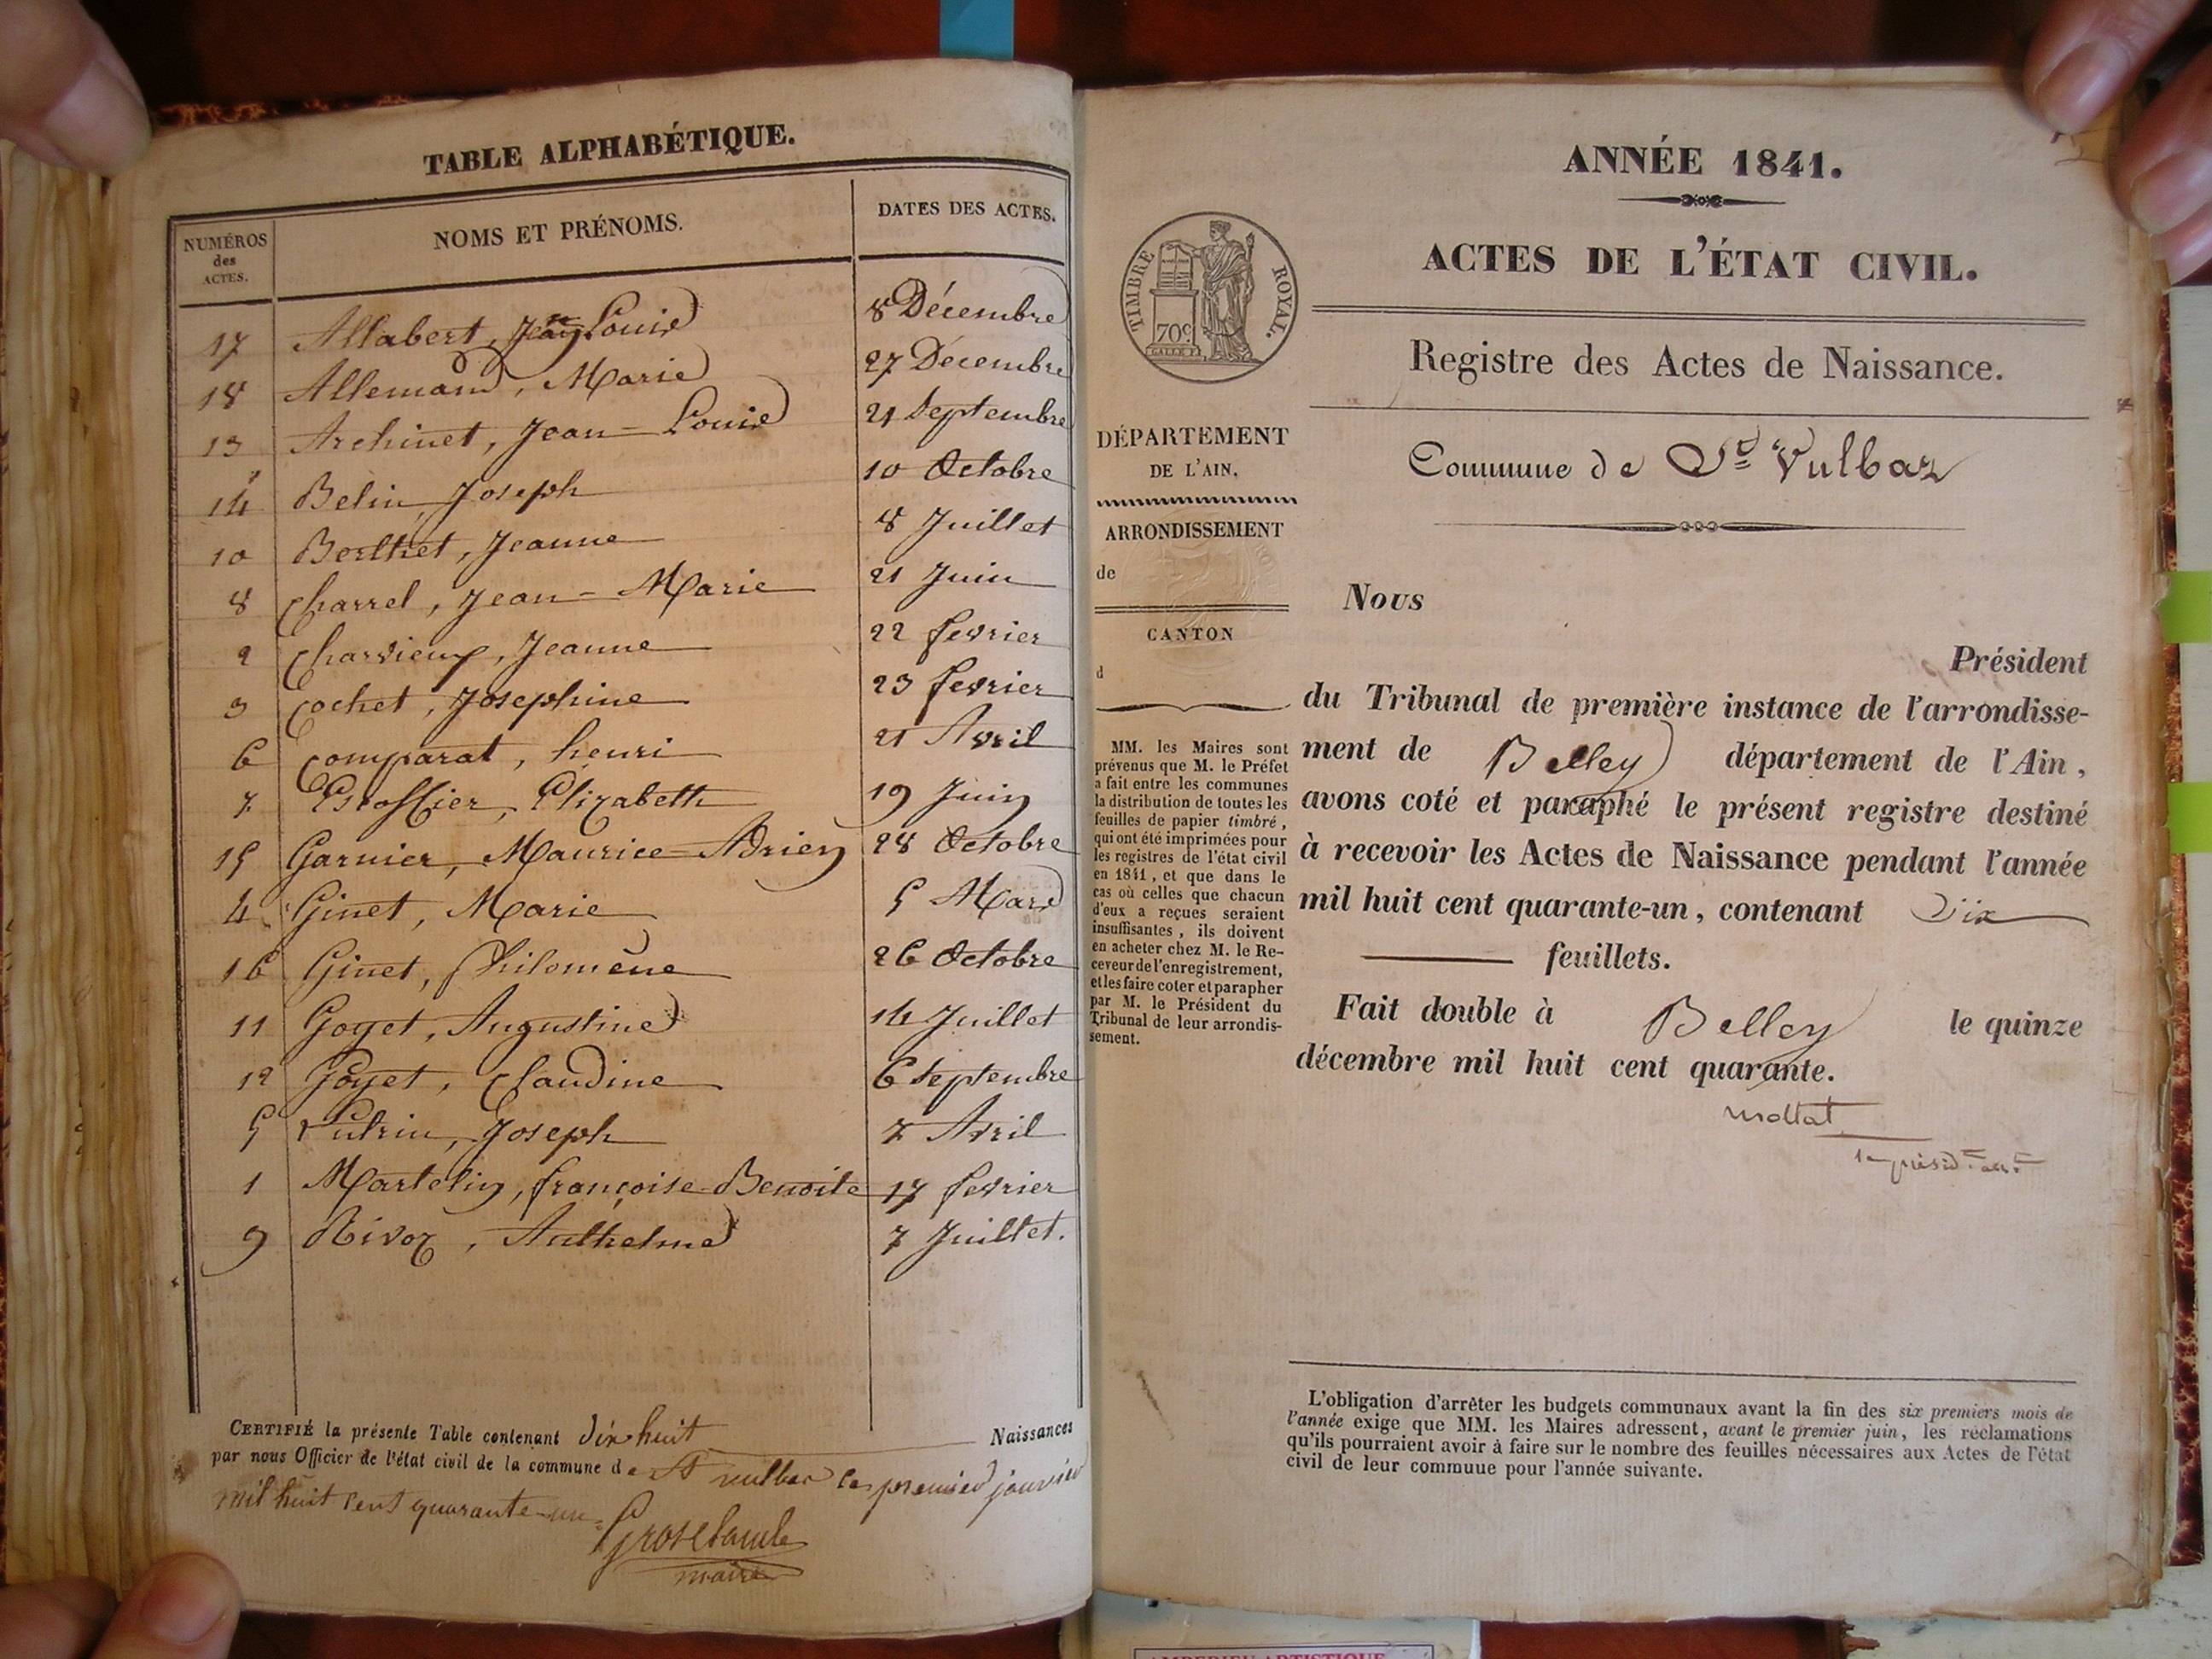 TABLE ALPHABÉTIQUE.
NUMÉROS des ACTES.
NOMS ET PRÉNOMS.
DATES DES ACTES.
17 Allabert, Jean Louis 8 Décembre
18 Allemand, Marie 27 Décembre
13 Archinet, Jean-Louis 21 Septembre
14 Belin, Joseph 10 Octobre
10 Berthet, Jeanne 8 Juillet
8 Charrel, Jean-Marie 21 Juin
2 Charvieux, Jeanne 22 fevrier
3 Cochet, Josephine 23 fevrier
6 Comparat, henri 21 Avril
7 Elizabeth 19 Juin
15 Garnier, Maurice-Adrien 28 Octobre
4 Ginet, Marie 5 Mars
16 Ginet, Philomène 26 Octobre
11 Goyet, Augustine 14 Juillet
12 Goyet, Claudine 6 Septembre
5 Joseph 7 Avril
1 Martelin, françoise-Benoite 17 fevrier
9 Rivoz, Anthelme 7 Juillet.
CERTIFIÉ la présente Table contenant dix huit Naissances
par nous Officier de l'état civil de la commune de St vulbas le premier janvier
mil huit cent quarante-un
maire
ANNÉE 1841.
ACTES DE L'ÉTAT CIVIL.
TIMBRE ROYAL.
70c
Registre des Actes de Naissance.
DÉPARTEMENT
DE L'AIN.
ARRONDISSEMENT
de
CANTON
d
MM. les Maires sont
prévenus que M. le Préfet
a fait entre les communes
la distribution de toutes les
feuilles de papier timbré,
qui ont été imprimées pour
les registres de l'état civil
en 1841, et que dans le
cas où celles que chacun
d'eux a reçues seraient
insuffisantes, ils doivent
en acheter chez M. le Re-
ceveur de l'enregistrement,
et les faire coter et parapher
par M. le Président du
Tribunal de leur arrondis-
sement.
Commune de St Vulbaz
Nous
Président
du Tribunal de première instance de l'arrondisse-
ment de Belley département de l'Ain,
avons coté et paraphé le présent registre destiné
à recevoir les Actes de Naissance pendant l'année
mil huit cent quarante-un, contenant Dix
feuillets.
Fait double à Belley le quinze
décembre mil huit cent quarante.
L'obligation d'arrêter les budgets communaux avant la fin des six premiers mois de
l'année exige que MM. les Maires adressent, avant le premier juin, les réclamations
qu'ils pourraient avoir à faire sur le nombre des feuilles nécessaires aux Actes de l'état
civil de leur commune pour l'année suivante.